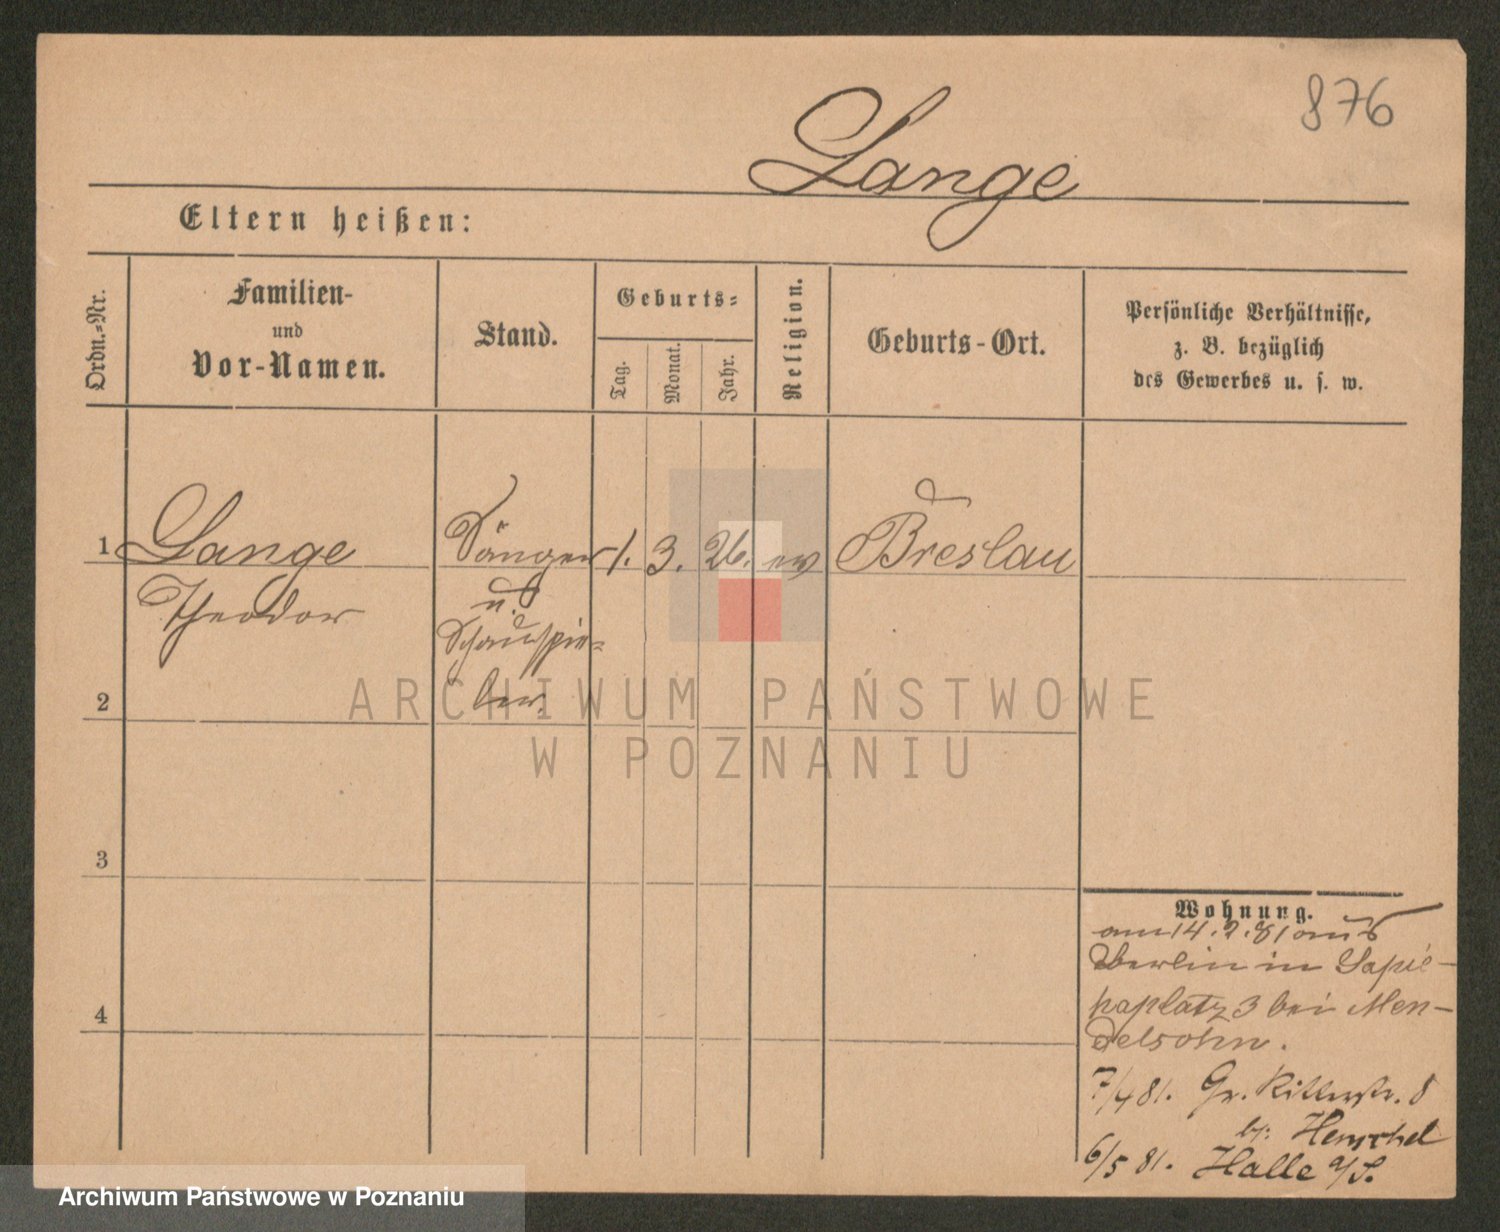 876
Lange
Eltern heißen:
Ordn.-Nr.
Familien-
und
Vor-Namen.
Stand.
Geburts-
Tag.
Monat.
Jahr.
Religion.
Geburts-Ort.
Persönliche Verhältnisse,
z. B. bezüglich
des Gewerbes u. s. w.
1 Lange Sänger 1. 3. 26. ev Breslau
Theodor u.
Schauspie=
ler.
2
3
4
Wohnung.
am 14.2.81 aus
Berlin in Sapie-
haplatz 3 bei Men-
delsohn.
7/4 81. Gr. Ritterstr. 8
b: Henschel
6/5 81. Halle a/S.
ARCHIWUM PAŃSTWOWE
W POZNANIU
Archiwum Państwowe w Poznaniu